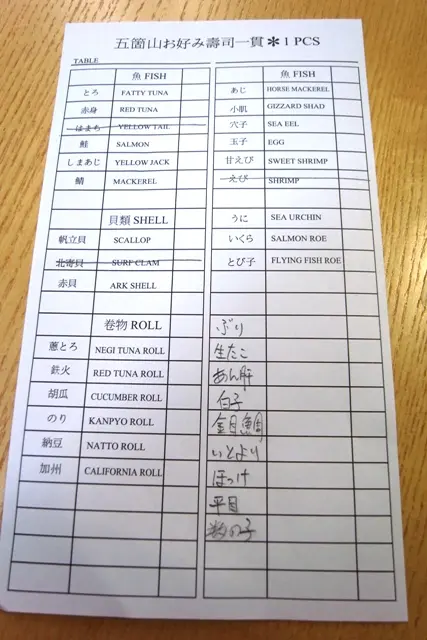 五箇山お好み壽司一貫＊1 PCS
TABLE
魚 FISH
とろ FATTY TUNA
赤身 RED TUNA
はまち YELLOW TAIL
鮭 SALMON
しまあじ YELLOW JACK
鯖 MACKEREL
貝類 SHELL
帆立貝 SCALLOP
北寄貝 SURF CLAM
赤貝 ARK SHELL
巻物 ROLL
葱とろ NEGI TUNA ROLL
鉄火 RED TUNA ROLL
胡瓜 CUCUMBER ROLL
のり KANPYO ROLL
納豆 NATTO ROLL
加州 CALIFORNIA ROLL
魚 FISH
あじ HORSE MACKEREL
小肌 GIZZARD SHAD
穴子 SEA EEL
玉子 EGG
甘えび SWEET SHRIMP
えび SHRIMP
うに SEA URCHIN
いくら SALMON ROE
とび子 FLYING FISH ROE
ぶり
生たこ
あん肝
白子
金目鯛
いとより
ほっけ
平目
数の子